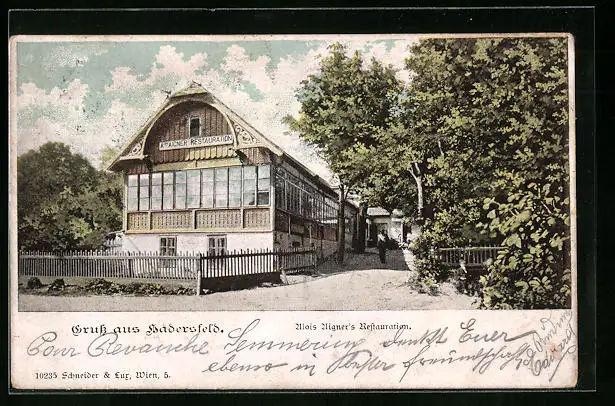 A. AIGNER RESTAURATION
Gruß aus Hadersfeld.
Alois Aigner's Restauration.
Pour Revanche Semmering denkt Euer
ebenso in freundschaft
10235 Schneider & Lux, Wien, 5.